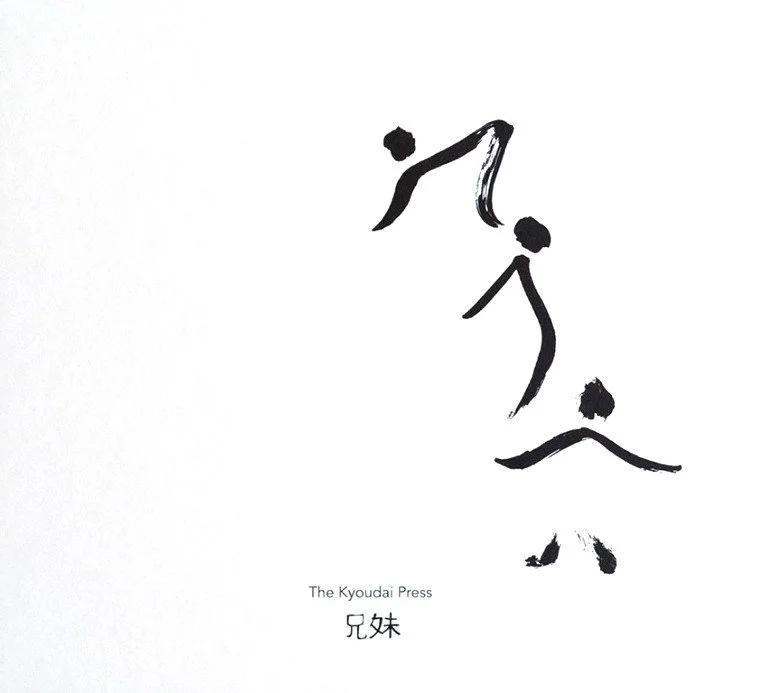 The Kyoudai Press
兄妹